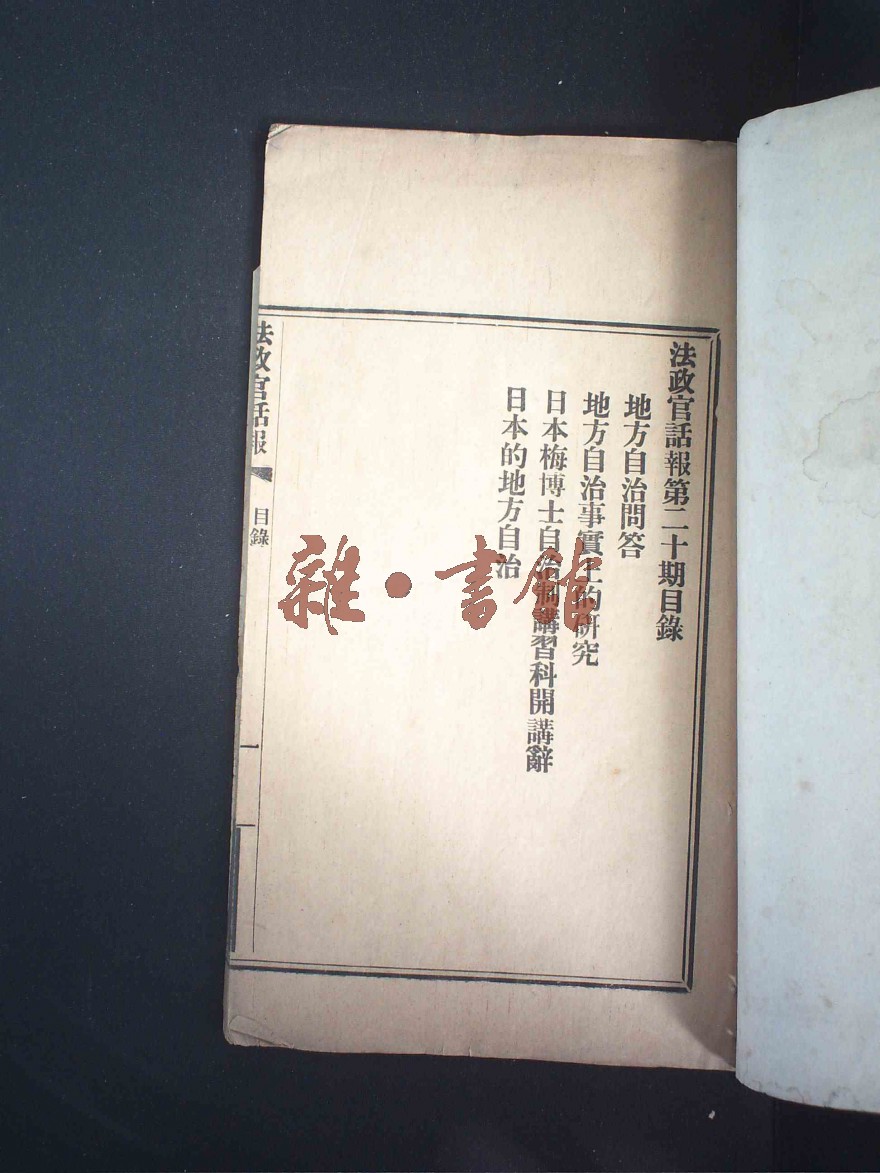 法政官話報第二十期目錄
地方自治問答
地方自治事實上的研究
日本梅博士自治制講習科開講辭
日本的地方自治
法政官話報
目錄
一
雜·書館